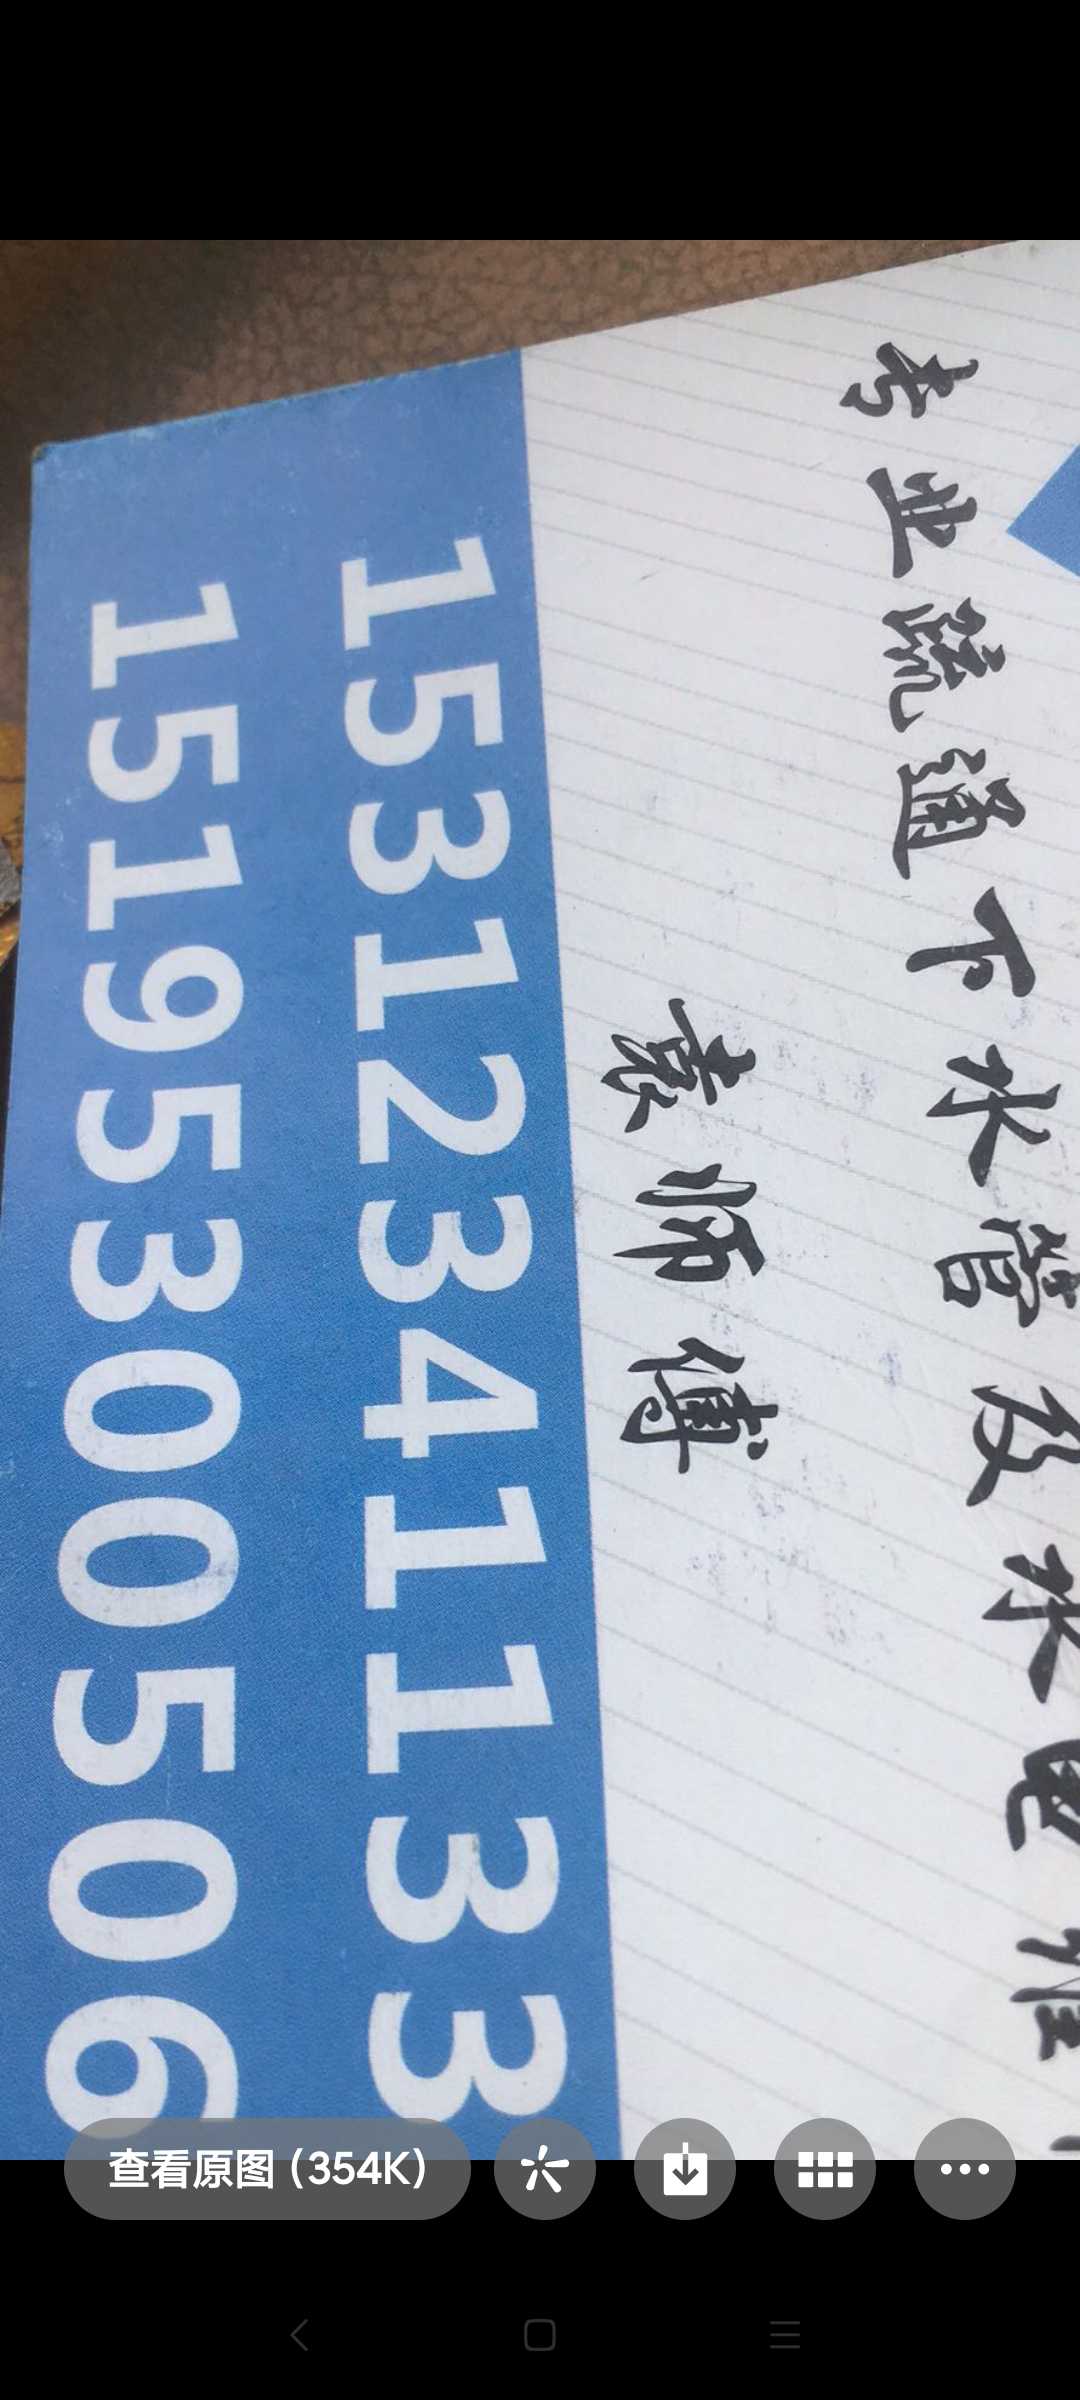 专业疏通下水管及水电维
袁师傅
15312341133
15195300506
查看原图 (354K)